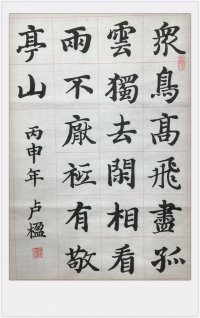 衆鳥髙飛盡孤
雲獨去閑相看
雨不厭衹有敬
亭山
丙申年 卢楹